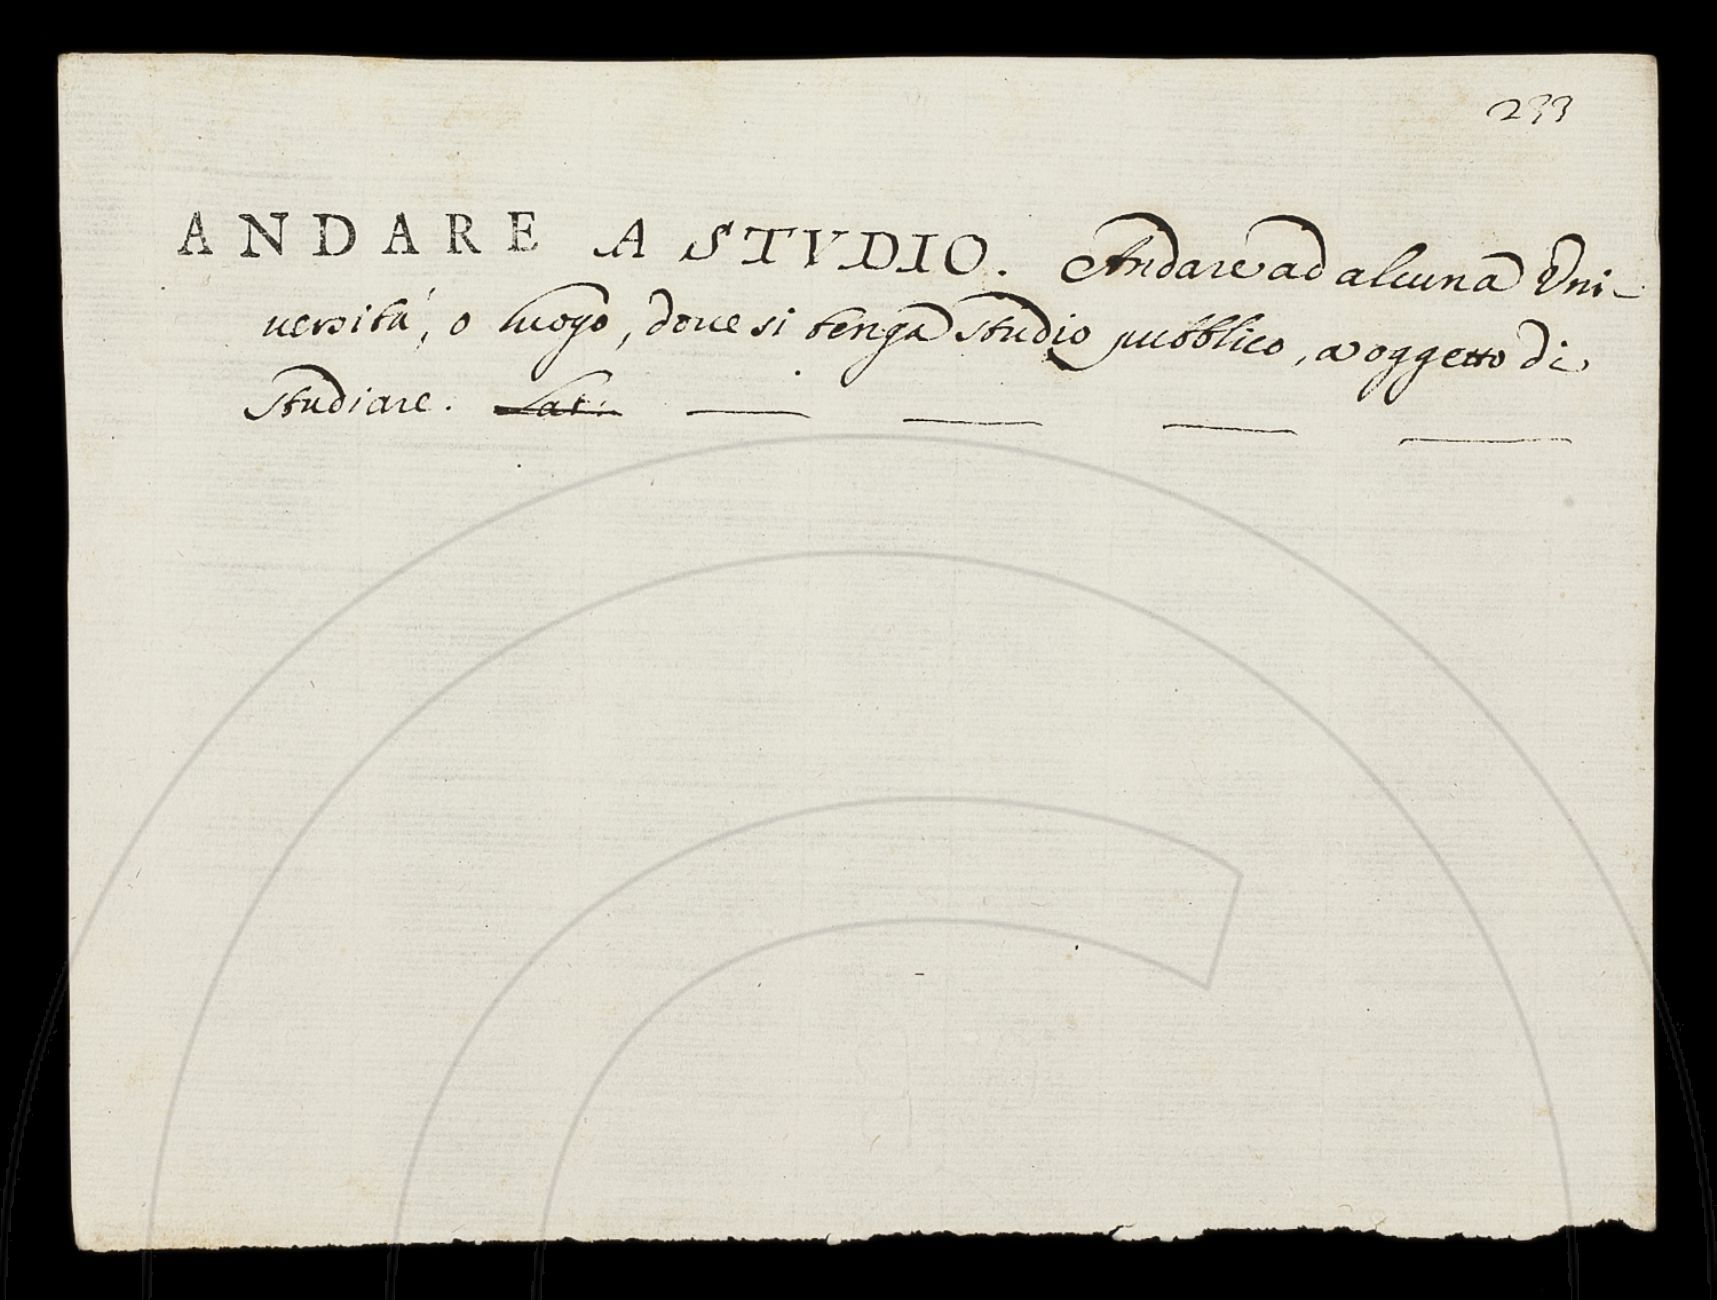 233
ANDARE A STVDIO. Andare ad alcuna Vni-
uersità, o luogo, doue si tenga studio pubblico, a oggetto di
studiare. Lat.